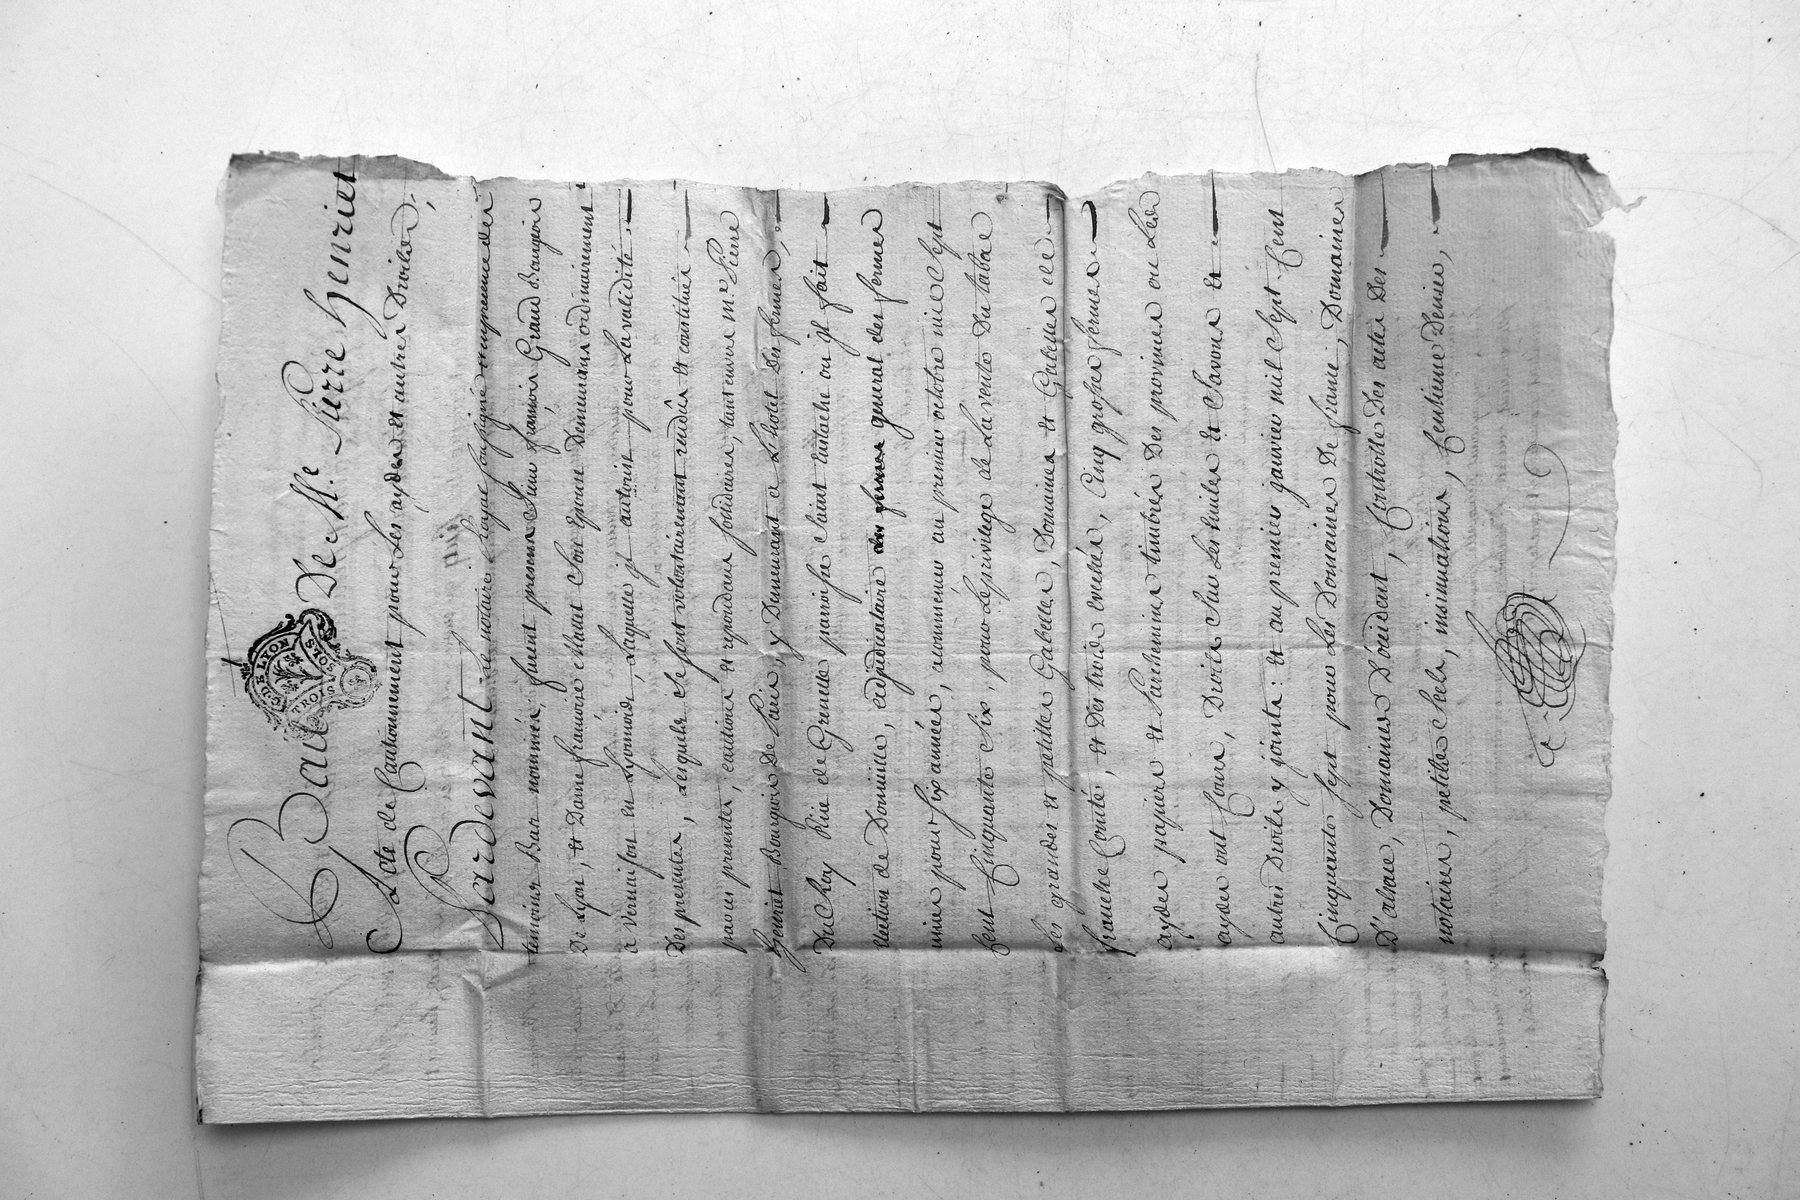 G. DE LYON
TROIS SOLS
Bail De Me. Pierre Henriet
Acte de Cautionnement pour Les aydes et autres Droits ;
Pardevant Le notaire Royal soussigné et en presence des
temoins Bas nommés, furent presens Sieur françois Giraud Bourgeois
De Lyon, et Dame françoise Son Epouse Demeurans ordinairement
à Vernaison en Lyonnois, Laquelle jl autorise pour La validité
Des presentes, Lesquels Se sont volontairement rendus et constitués
par ces presentes, cautions et repondans solidaires, tant envers Me. Pierre
Henriet Bourgeois De Paris, y Demeurant a L'hotel Des fermes,
Du Roy Rüe de Grenelle parroisse Saint Eustache où jl fait
Election de Domicille, adjudicataire des fermes general des fermes
unies pour six années, commencées au premier octobre mil Sept
Cent Cinquante Six, pour Le privilege de La vente Du tabac
Les grandes et petittes Gabelles, Domaines et Gabelles de
franche Comté, et Des trois evechés, Cinq grosses fermes
aydes, papiers et Parchemins timbrés Des provinces ou Les
aydes ont Cours, Droits Sur Les huiles et Savons et
autres Droits y joints : et au premier janvier mil Sept Cent
Cinquante Sept pour Les Domaines De france, Domaines
D'alsace, Domaines D'occident, Controlle Des actes Des
notaires, petits Seels, insinuations, Centieme Denier,